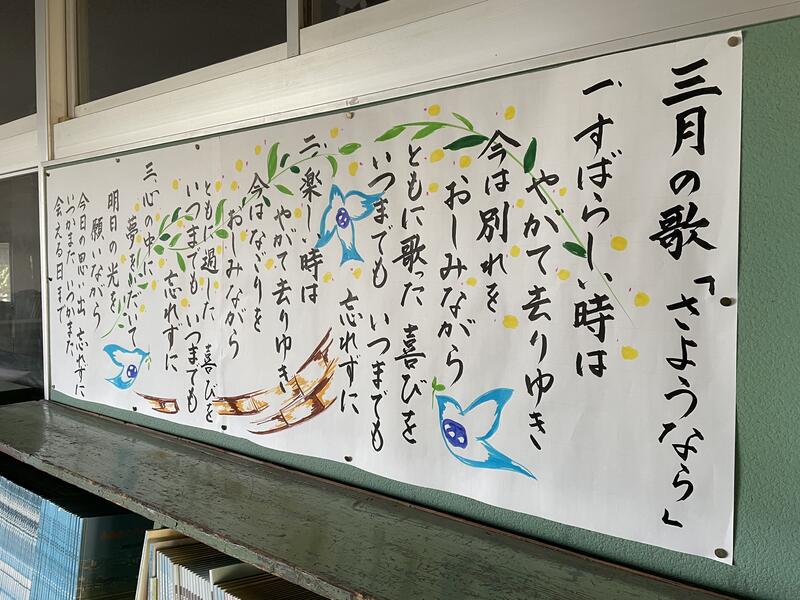 三月の歌「さようなら」
一、すばらしい時は
やがて去りゆき
今は別れを
おしみながら
ともに歌った 喜びを
いつまでも いつまでも
忘れずに
二、楽しい時は
やがて去りゆき
今はなごりを
おしみながら
ともに過した 喜びを
いつまでも いつまでも
忘れずに
三、心の中に
夢をいだいて
明日の光を
願いながら
今日の思い出 忘れずに
いつかまた いつかまた
会える日まで